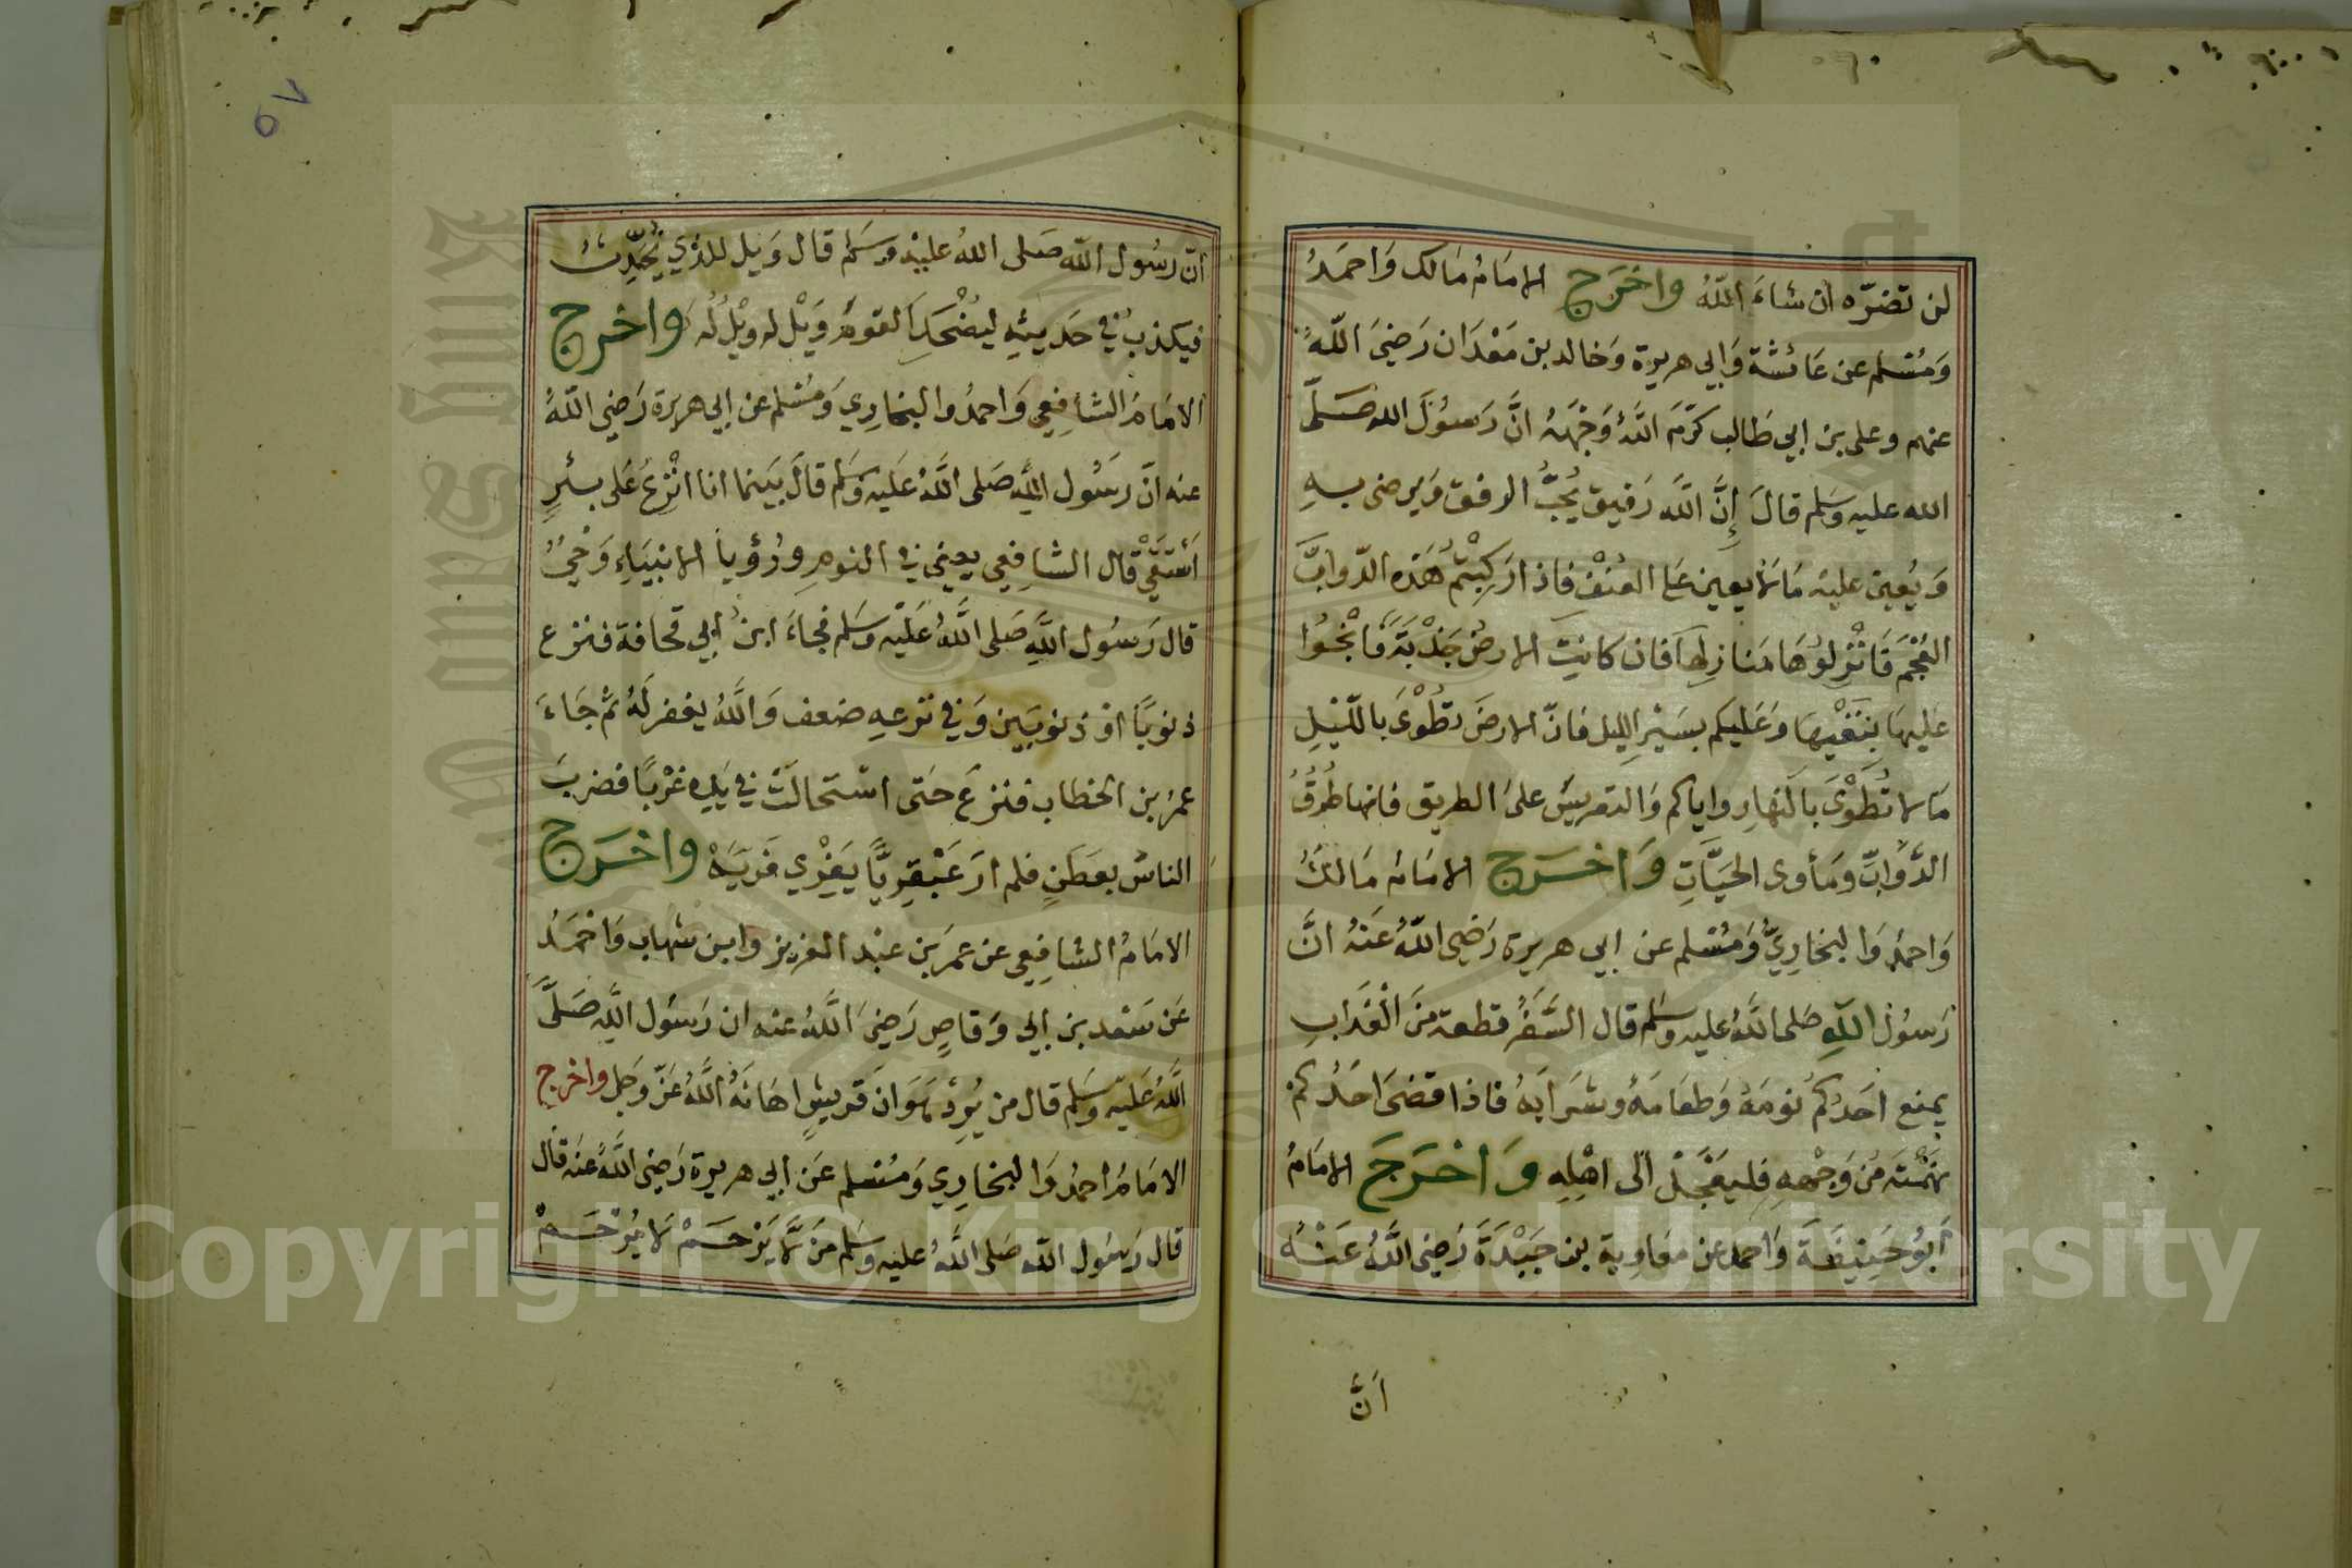 لن تضرّه ان شاءَ اللّهُ واخرج الامَامُ مَالك وَاحمَدُ
وَمُسْلم عن عَائشة وَابي هريرة وَخالد بن مَعْدَان رَضيَ اللّهُ
عنهم وعلى بن ابي طَالب كرَّمَ اللَّهُ وَجْهَهُ انَّ رَسوُلَ الله صَلّى
الله عليه وَسَلم قالَ إنَّ اللَّه رَفيق يُحبُّ الرفق وَيرضى بهِ
وَيُعين عليْه مَا لا يعين عَلى العُنْفْ فاذا رَكبْتمُ هَذه الدّوابَّ
العُجْمَ فَانْزلوُهَا مَنازلهَا فان كانتِ الارضُ جَدْبَةً فَانْجُوا
عَليهَا بنِقْيهَا وَعَليكم بسَيْر الليل فانّ الارضَ تطْوَى بالليْلِ
مَا لا تُطْوَى بالنهارِ واياكم وَالتعريسَ علىَ الطريق فانها طُرُقُ
الدَّوَابِّ وَمَأوى الحيَّاتِ وَاخرج الامَامُ مَالكُ
وَاحمدُ وَالبخارِيُّ وَمُسْلم عن ابي هريرة رَضيَ اللّهُ عَنْهُ انَّ
رَسوُلَ اللَّهِ صَلى اللَّهُ عليه وَسَلم قال السَّفَرُ قطعة منَ الْعَذَابِ
يمنع احَدكمُ نومَهُ وَطعَامَهُ وشرَابَهُ فاذا قضىَ احَدُكمْ
نَهْمَتَه مِنْ وَجْههِ فليعَجِّلْ الى اهْلِهِ وَاخرَجَ الامَامُ
أبوُ حَنيفَةَ وَاحمد عن معَاوية بن حَيْدَةَ رَضيَ اللَّهُ عَنْهُ
اَنَّ
٥٧
انّ رسُول اللّه صَلى اللهُ عليْه وسَلم قال وَيل للذي يُحَدِّثُ
فيكذبُ في حَديثهِ ليُضْحكَ القومَ وَيْل له ويْل لُه واخرج
الامَامُ الشافِعِي وَاحمدُ والبخارِي وَمُسْلم عن ابي هريرة رَضي اللّهُ
عنه انَّ رَسُول اللَّهِ صَلى اللَّهُ عَليه وَسَلم قالَ بَينما انا انْزعُ عَلى بئرٍ
أستَقي قال الشافِعِي يعني في النومِ ورُؤيا الانبيَاءِ وَحْيٌ
قال رَسوُل اللَّهِ صَلى اللَّهُ عَليْه وَسَلم فجاءَ ابنُ ابي قحافة فنزع
ذنوبًا اوْ ذنوبَيين وَفي نزعهِ ضعف وَاللَّهُ يغفر لَهُ ثم جَاءَ
عمرُ بن الخطاب فنزعَ حَتى اسْتحالَتْ في يَدِه غرْبًا فضربَ
الناسُ بعطَنٍ فلم ارَ عَبْقِريًّا يَفْرِي فَريَّه واخرج
الامَامُ الشافِعِي عن عمرَ بن عبْد العَزيز وابن شهاب وَاحمَدُ
عَن سَعْد بن ابي وَقاصٍ رَضيَ اللَّهُ عنه ان رَسوُل اللَّهِ صَلَّى
اللَّهُ عَليْه وَسَلم قال من يُرِدْ هَوَانَ قريشٍ اهَانَهُ اللَّهُ عَزّ وَجَل واخرج
الامَامُ احمدُ وَالبخارِي وَمُسْلم عَن ابي هريرة رَضيَ اللَّهُ عَنه قال
قال رَسوُل اللّه صَلى اللَّهُ عليه وَسَلم مَن لا يَرْحَمْ لا يُرْحَمْ
Copyright © King Saud University